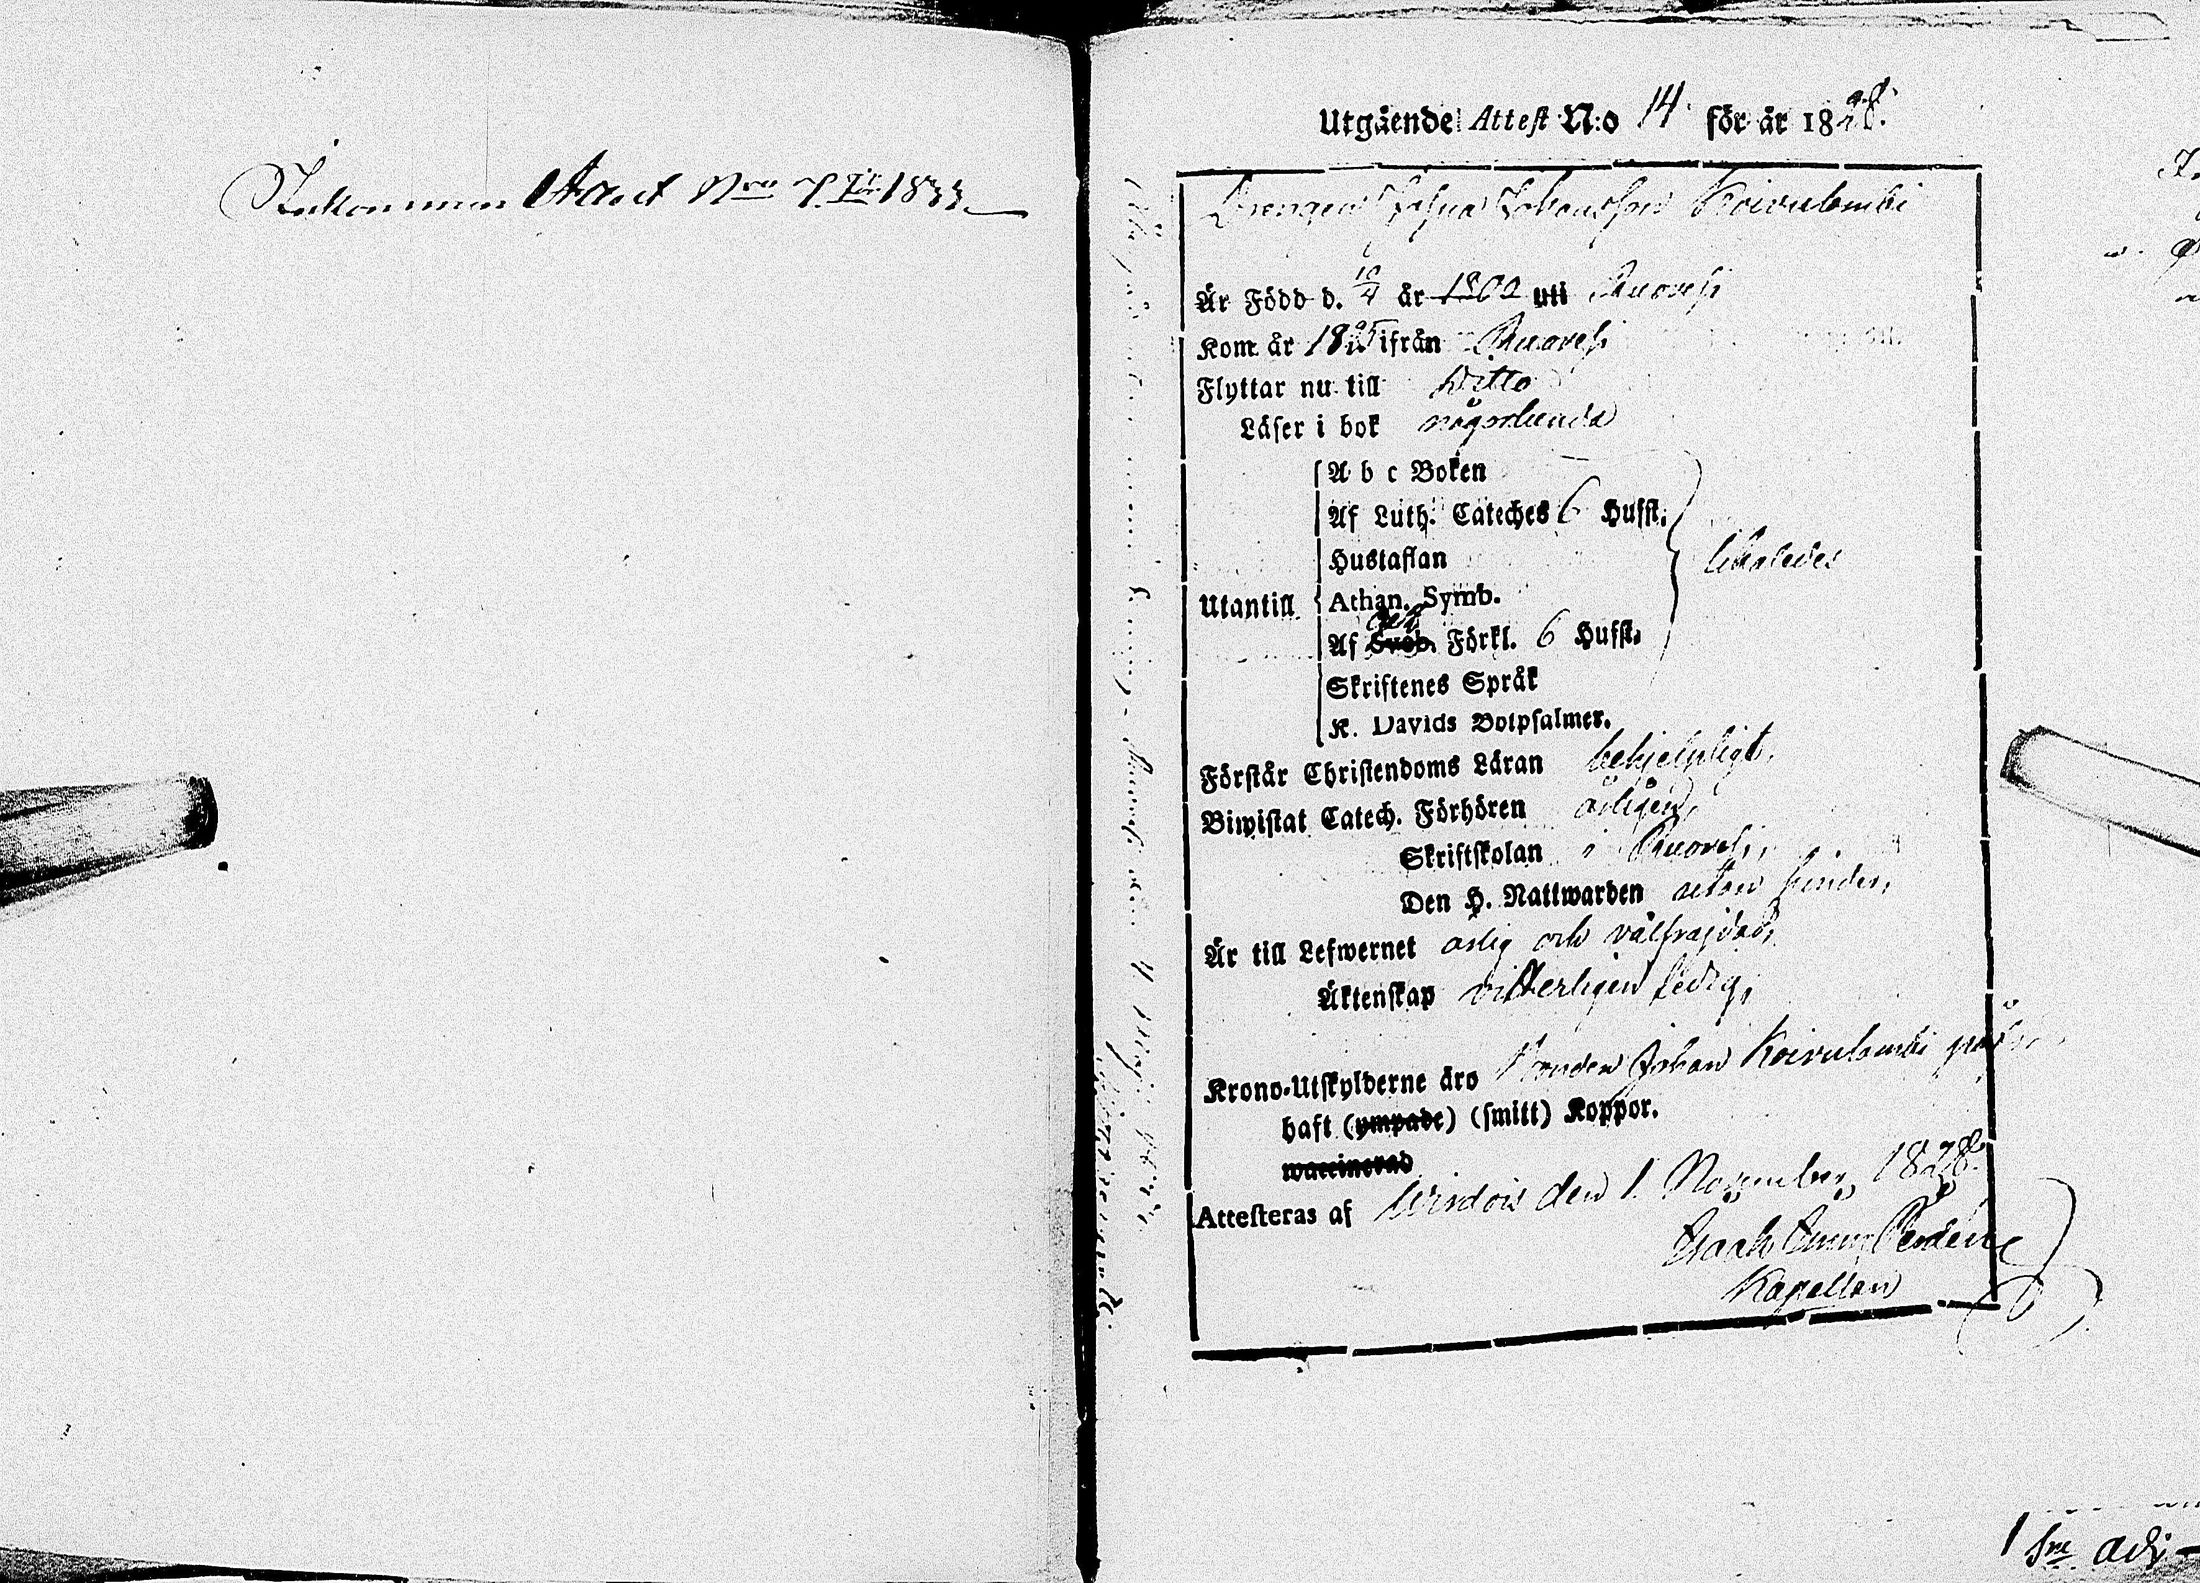 Inkommen Attest Nro 7. för 1833
Utgående Attest N:o 14. för år 1828.
Drengen Josua Johansson Koivulambi
Är Född d. 10/4 år 1802 uti Ruovesi
Kom år 1825 ifrån Ruovesi
Flyttar nu till ditto
Läser i bok någorlunda
A b c Boken
Af Luth. Cateches 6 Hufst.
Hustaflan
likaledes
Utantill Athan. Symb.
Af Sveb. Förkl. 6 Hufst.
Skriftenes Språk
K. Davids Botpsalmer.
Förstår Christendoms Läran behjelpligt,
Biwistat Catech. Förhören årligen,
Skriftskolan i Ruovesi,
Den H. Nattwarden utan hinder,
Är till Lefwernet ärlig och välfrajdad,
Äktenskap vitterligen ledig,
Krono-Utskylderne äro Bonden Johan Koivulambi
haft (ympade) (smitt) Koppor.
waccinerad
Attesteras af Wirdois den 1. November 1828.
Isaak
Kapellan
1 sne adj